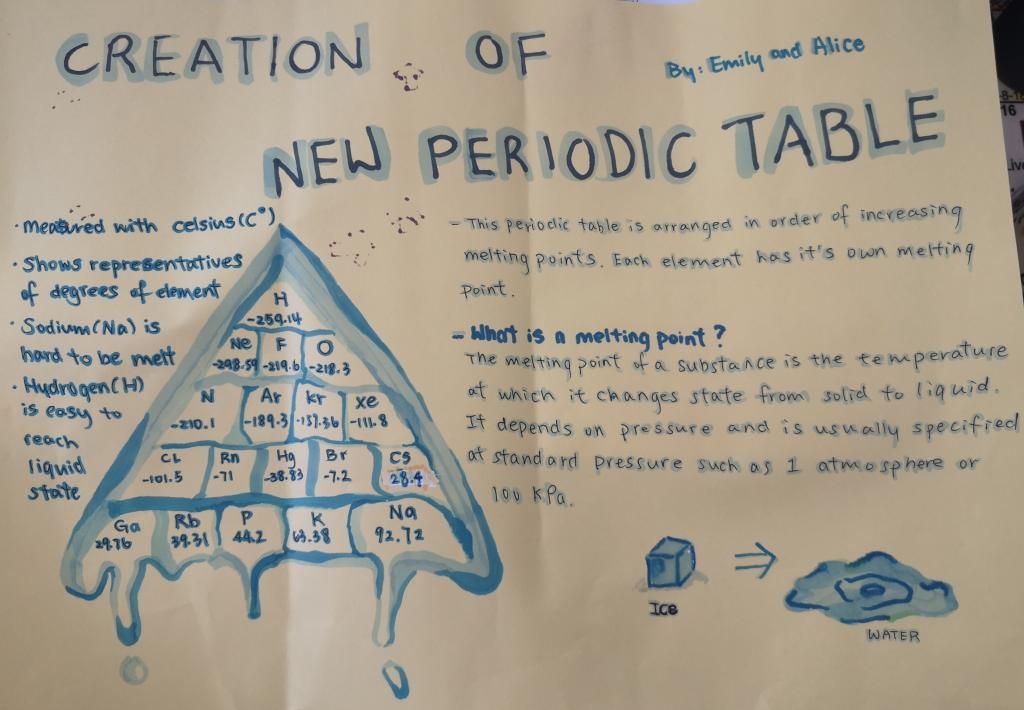 CREATION OF
By: Emily and Alice
NEW PERIODIC TABLE
· Measured with celsius (C°)
· Shows representatives
of degrees of element
· Sodium (Na) is
hard to be melt
· Hydrogen (H)
is easy to
reach
liquid
state
H
-259.14
Ne F O
-248.59 -219.6 -218.3
N Ar kr xe
-210.1 -189.3 -157.36 -111.8
CL Rn Hg Br Cs
-101.5 -71 -38.83 -7.2 28.4
Ga Rb P K Na
29.76 39.31 44.2 63.38 92.72
- This periodic table is arranged in order of increasing
melting points. Each element has it's own melting
point.
- What is a melting point?
The melting point of a substance is the temperature
at which it changes state from solid to liquid.
It depends on pressure and is usually specified
at standard pressure such as 1 atmosphere or
100 KPa.
ICE
WATER